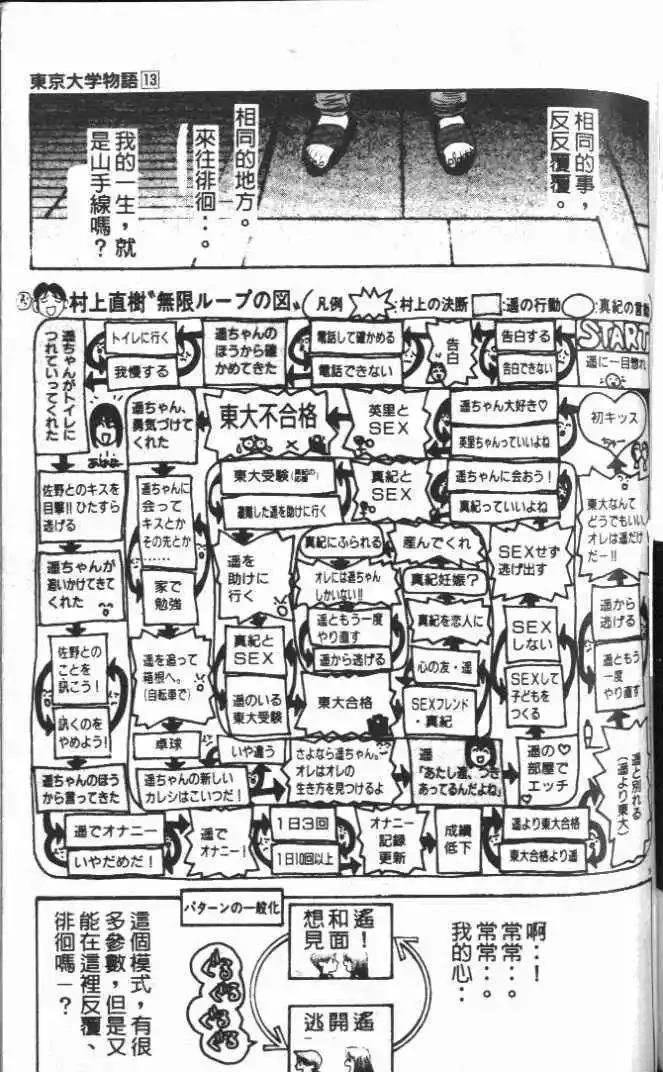 東京大学物語 13
相同的事，
反反覆覆。
相同的地方。
來往徘徊…。
我的一生，就
是山手線嗎？
村上直樹〝無限ループの図〟
凡例
:村上の決断
:遥の行動
:真紀の言動
START
遥に一目惚れ
告白する
告白できない
告白
電話して確かめる
電話できない
遥ちゃんの
ほうから確
かめてきた
トイレに行く
我慢する
遥ちゃんがトイレに
つれていってくれた
初キッス
遥ちゃん大好き♡
英里ちゃんっていいよね
英里と
SEX
東大不合格
遥ちゃん、
勇気づけて
くれた
あはは
佐野とのキスを
目撃!! ひたすら
逃げる
遥ちゃんに
会って
キスとか
その先とか
……
東大受験
遭難した遥を助けに行く
真紀と
SEX
遥ちゃんに会おう！
真紀っていいよね
東大なんて
どうでもいい
オレは遥だけ
だー!!
遥ちゃんが
追いかけてきて
くれた
家で
勉強
遥を
助けに
行く
真紀にふられる
産んでくれ
SEXせず
逃げ出す
オレには遥ちゃん
しかいない!!
真紀妊娠？
遥から
逃げる
遥ともう
一度
やり直す
佐野との
ことを
訊こう！
訊くのを
やめよう！
遥を追って
箱根へ。
(自転車で)
真紀と
SEX
遥のいる
東大受験
遥ともう一度
やり直す
遥から逃げる
真紀を恋人に
心の友・遥
SEX
しない
SEXして
子どもを
つくる
東大合格
SEXフレンド
・真紀
卓球
いや違う
遥ちゃんのほう
から言ってきた
遥ちゃんの新しい
カレシはこいつだ！
さよなら遥ちゃん。
オレはオレの
生き方を見つけるよ
遥
「あたし達、つき
あってるんだよね」
遥の♡
部屋で
エッチ
遥と別れる
(遥より東大)
遥でオナニー
いやだめだ！
遥で
オナニー！
1日3回
1日10回以上
オナニー
記録
更新
成績
低下
遥より東大合格
東大合格より遥
啊…！
常常…。
常常…。
我的心…
パターンの一般化
想和遙
見面！
逃開遙
ぐるぐるぐるぐる
這個模式，有很
多參數，但是又
能在這裡反覆、
徘徊嗎—？